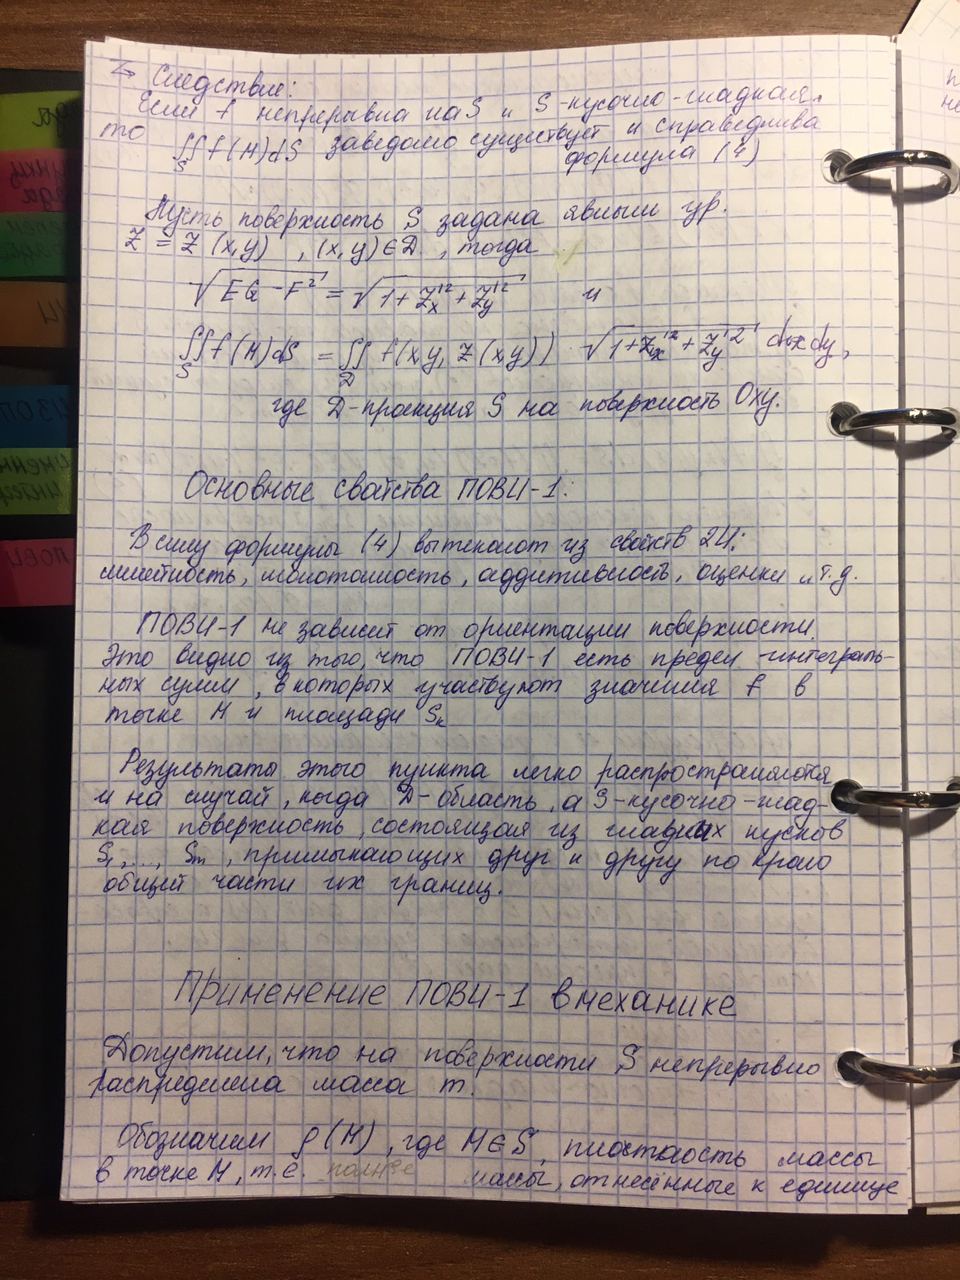 Следствие:
Если f непрерывна на S и S-кусочно-гладкая,
то ∬f(M)dS заведомо существует и справедлива
S
формула (4)
Пусть поверхность S задана явным ур.
Z = Z (x,y) , (x,y)∈D , тогда
√EG-F² = √1+Z'²x+Z'²y и
∬f(M)dS = ∬ f(x,y, Z(x,y)) √1+Z'²x+Z'²y dxdy,
S D
где D-проекция S на поверхность Oxy.
Основные свойства ПОВИ-1:
В силу формулы (4) вытекают из свойств 2И:
линейность, монотонность, аддитивность, оценки и т.д.
ПОВИ-1 не зависит от ориентации поверхности.
Это видно из того, что ПОВИ-1 есть предел интеграль-
ных сумм, в которых участвуют значения f в
точке M и площади Sk
Результаты этого пункта легко распространяются
и на случай, когда D-область, а S-кусочно-глад-
кая поверхность, состоящая из гладких кусков
S1,..., Sm, примыкающих друг к другу по краю
общей части их границ.
Применение ПОВИ-1 в механике
Допустим, что на поверхности S непрерывно
распределена масса m.
Обозначим ρ(M), где M∈S, плотность массы
в точке M, т.е. массы, отнесённые к единице
ПОВИ